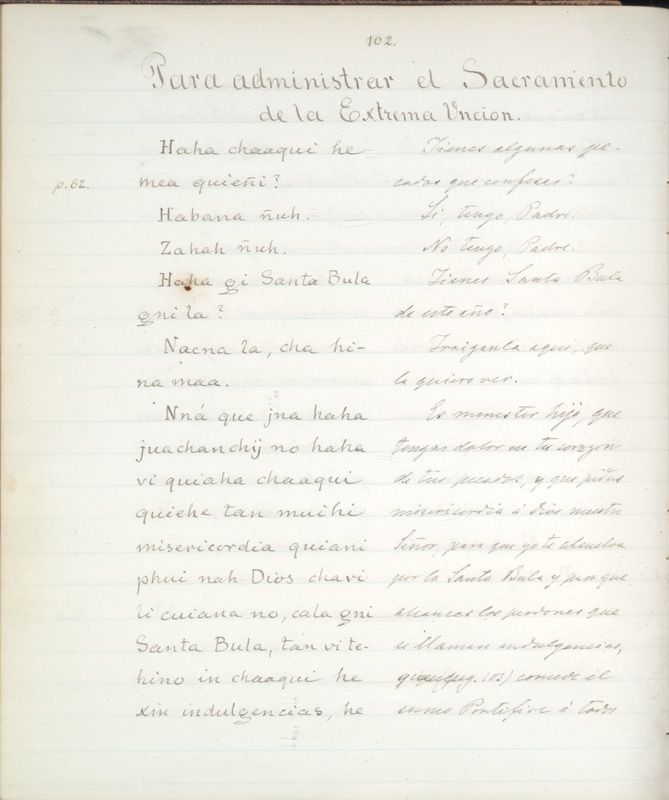 102.
Para administrar el Sacramento
de la Extrema Vncion.
Haha chaaqui he
mea quieñi?
Habana ñuh.
Zahah ñuh.
Haha gi Santa Bula
gni la?
Nacna la, cha hi-
na maa.
Nná que jna haha
juachanchij no haha
vi quiaha chaaqui
quiehe tan muihi
misericordia quiani
phui nah Dios chavi
li cuiana no, cala gni
Santa Bula, tan vi te-
hino in chaaqui he
xin indulgencias, he
p. 82.
Tienes algunas pe-
cados que confeses?
Si, tengo, Padre.
No tengo, Padre.
Tienes Santa Bula
de este año?
Traiganla aqui, que
la quiero ver.
Es menester hijo, que
tengas dolor en tu corazon
de tus pecados, y que pidas
misericordia á Dios nuestro
Señor, para que yo te absuelva
por la Santa Bula y para que
alcances los perdones que
se llaman indulgencias,
(pag. 103) concede el
sumo Pontifice á todos